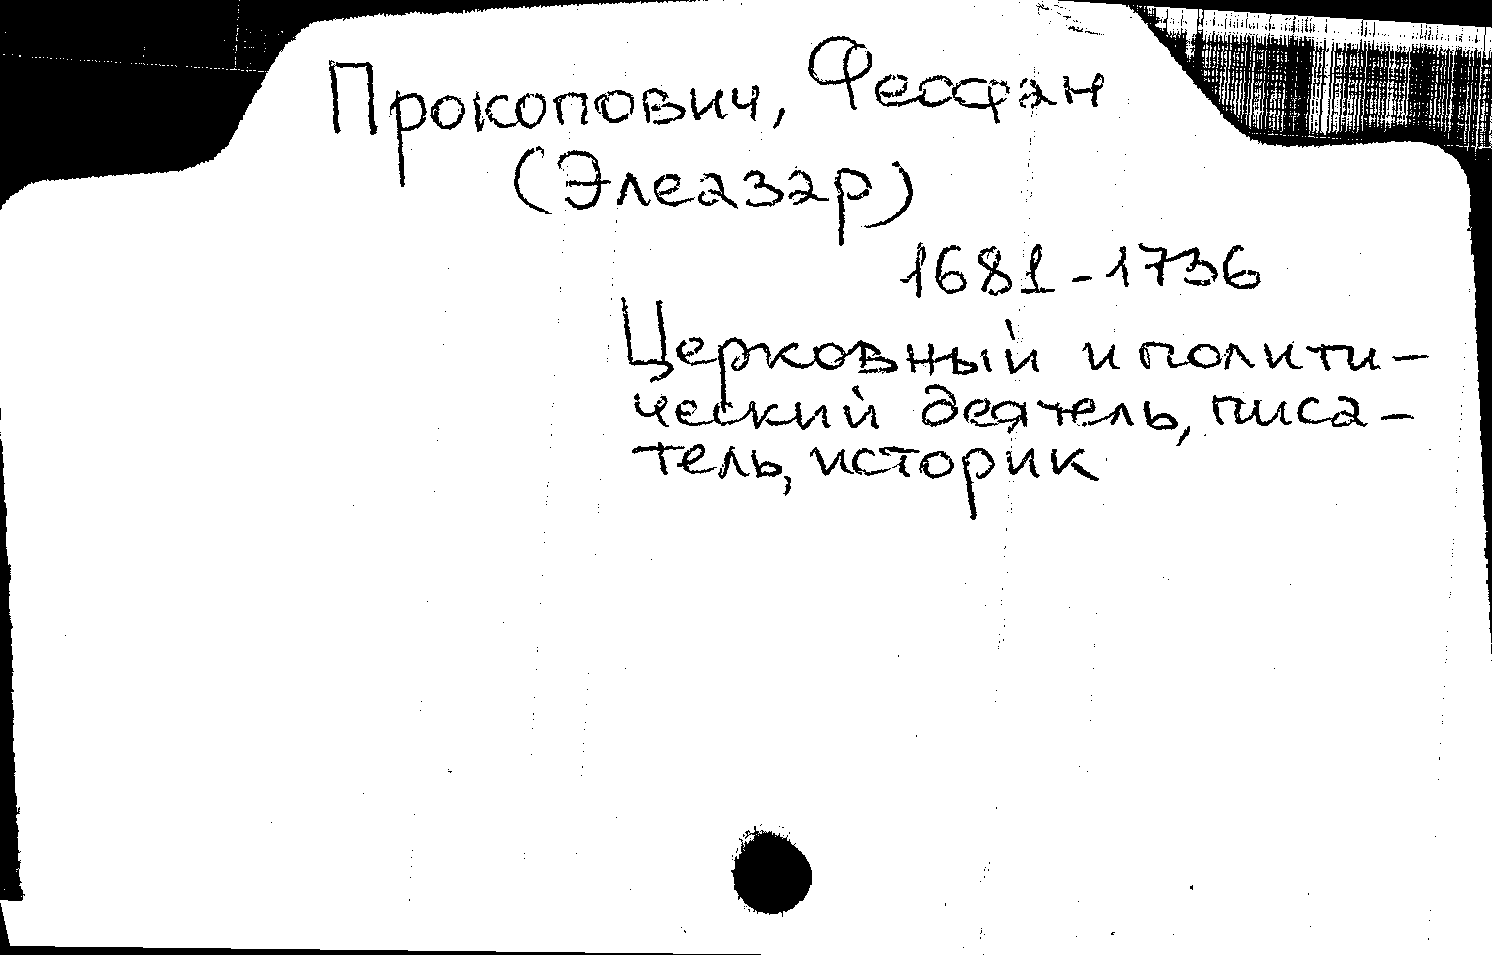 Прокопович, Феофан
(Элеазар)
1681-1736
Церковный и полити-
ческий деятель, писа-
тель, историк